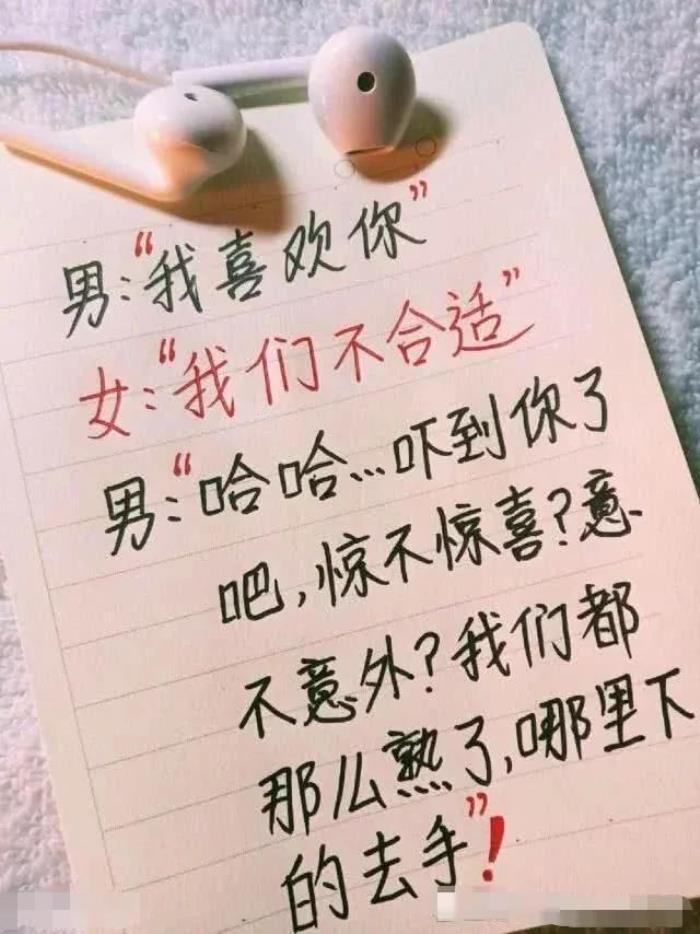 男:“我喜欢你”
女:“我们不合适”
男:“哈哈...吓到你了
吧,惊不惊喜?意
不意外?我们都
那么熟了,哪里下
的去手”!